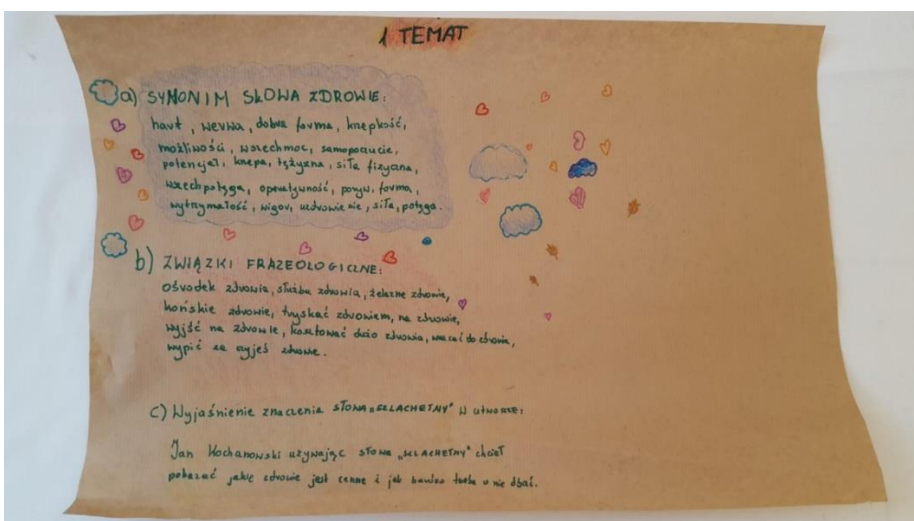 1 TEMAT
a) SYNONIM SŁOWA ZDROWIE:
hart, werwa, dobra forma, krzepkość,
możliwości, wszechmoc, samopoczucie,
potencjał, krzepa, tężyzna, siła fizyczna,
wszechpotęga, operatywność, poryw, forma,
wytrzymałość, wigor, uzdrowienie, siła, potęga.
b) ZWIĄZKI FRAZEOLOGICZNE:
ośrodek zdrowia, służba zdrowia, żelazne zdrowie,
końskie zdrowie, tryskać zdrowiem, na zdrowie,
wyjść na zdrowie, kosztować dużo zdrowia, wracać do zdrowia,
wypić za czyjeś zdrowie.
c) Wyjaśnienie znaczenia słowa „SZLACHETNY" w utworze:
Jan Kochanowski używając słowa „SZLACHETNY" chciał
pokazać jakie zdrowie jest cenne i jak bardzo trzeba o nie dbać.